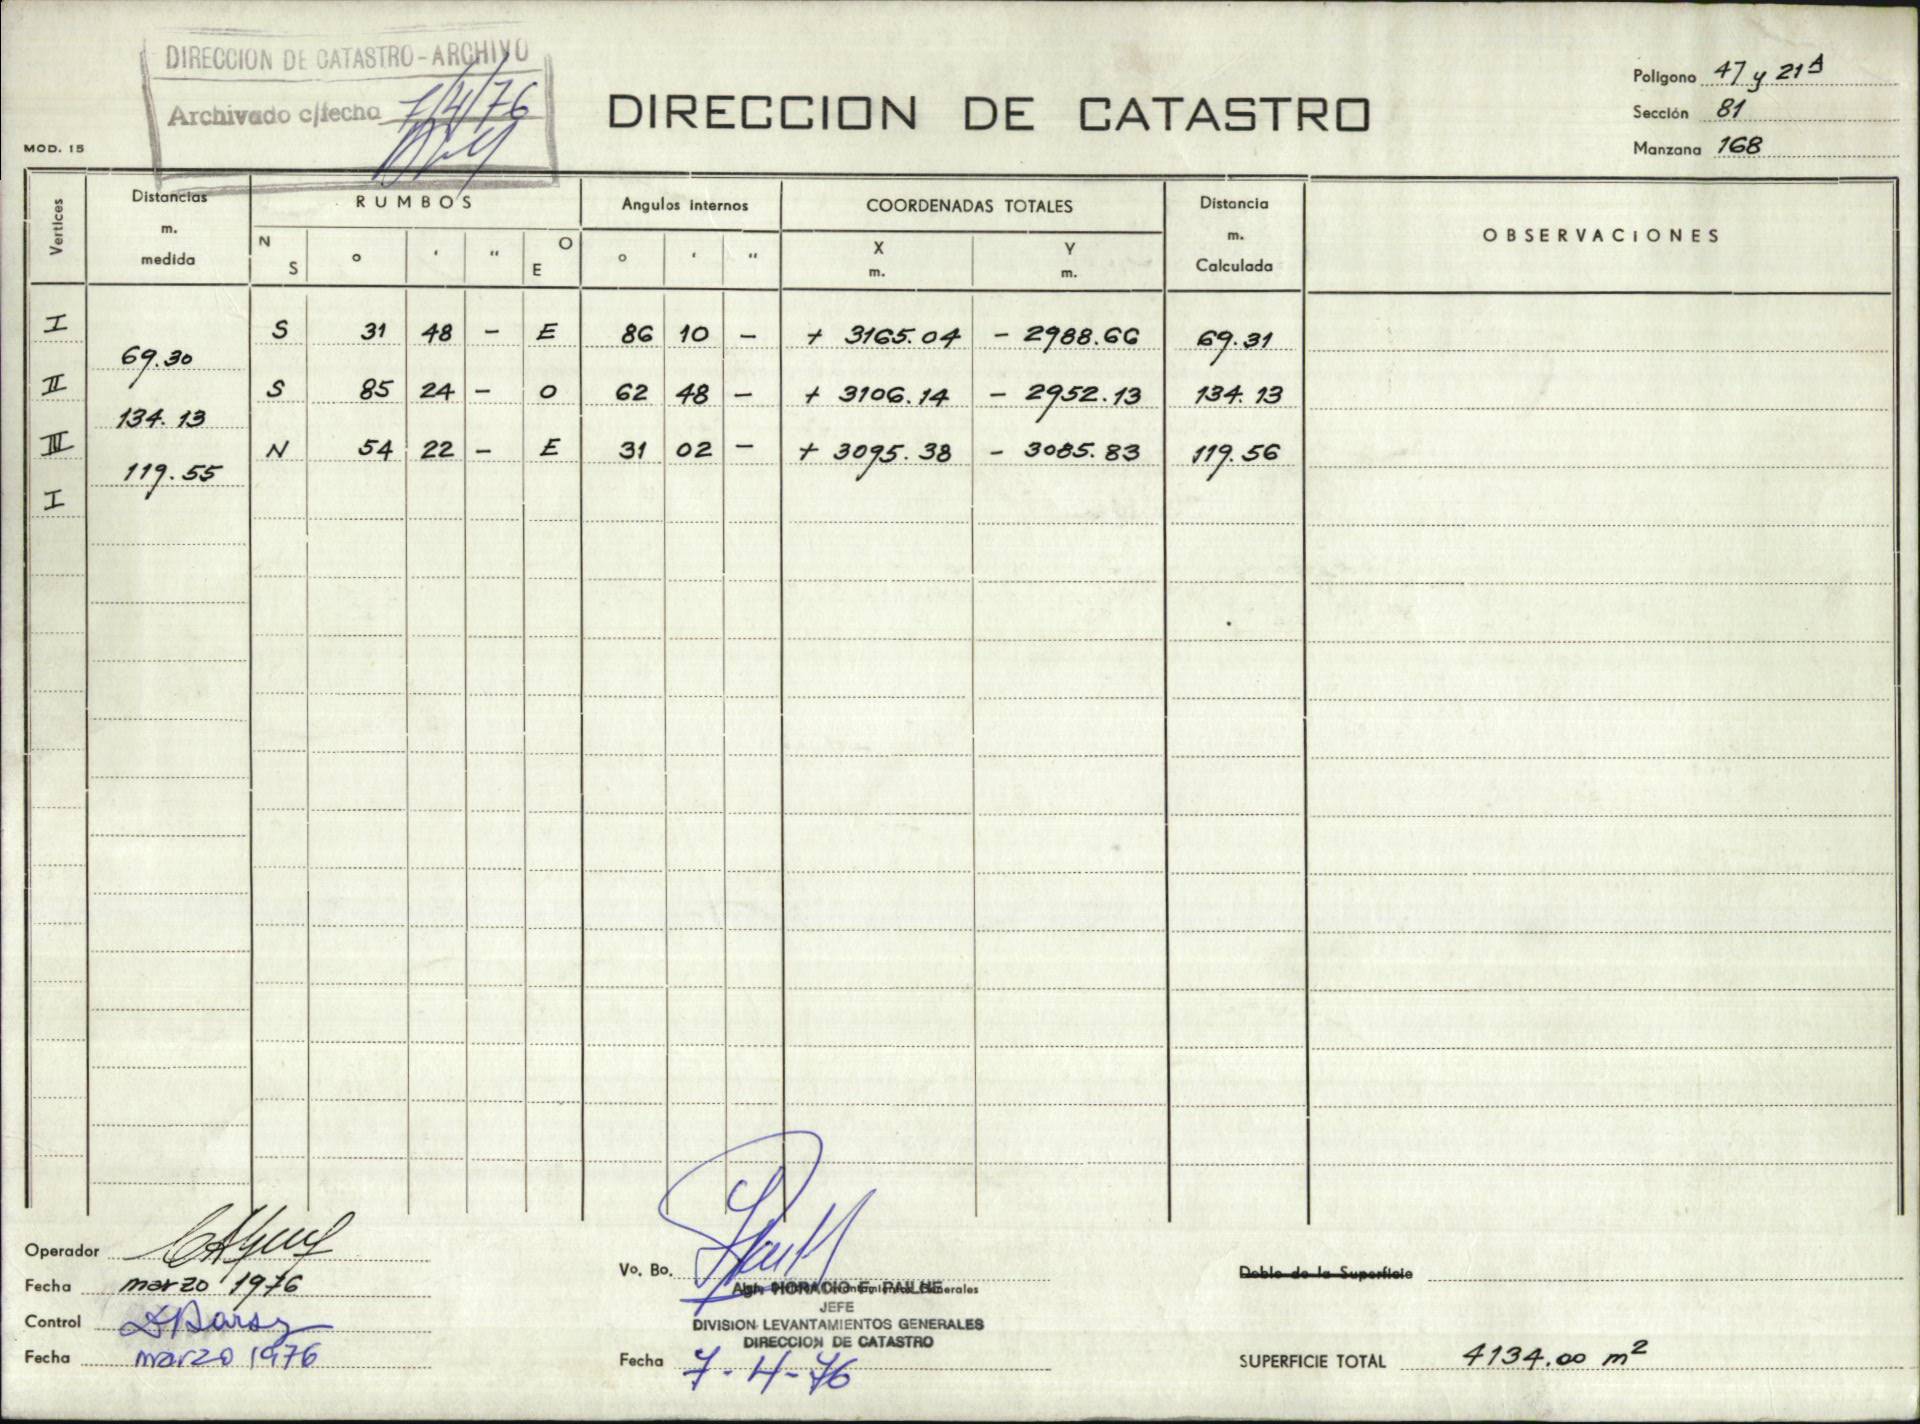 DIRECCION DE CATASTRO-ARCHIVO
Archivado c/fecha 7/4/76
DIRECCION DE CATASTRO
Polígono 47 y 21A
Sección 81
Manzana 168
MOD. 15
Vertices
Distancias m. medida
RUMBOS
N S ° ' " O E
Angulos internos
° ' "
COORDENADAS TOTALES
X m. Y m.
Distancia m. Calculada
OBSERVACIONES
I S 31 48 - E 86 10 - + 3165.04 - 2988.66 69.31
69.30
II S 85 24 - O 62 48 - + 3106.14 - 2952.13 134.13
134.13
III N 54 22 - E 31 02 - + 3095.38 - 3085.83 119.56
119.55
I
Operador
Fecha marzo 1976
Control
Fecha marzo 1976
Vo. Bo.
HORACIO E. PAILHE
JEFE
DIVISION LEVANTAMIENTOS GENERALES
DIRECCION DE CATASTRO
Fecha 7-4-76
Doble de la Superficie
SUPERFICIE TOTAL 4134.00 m2